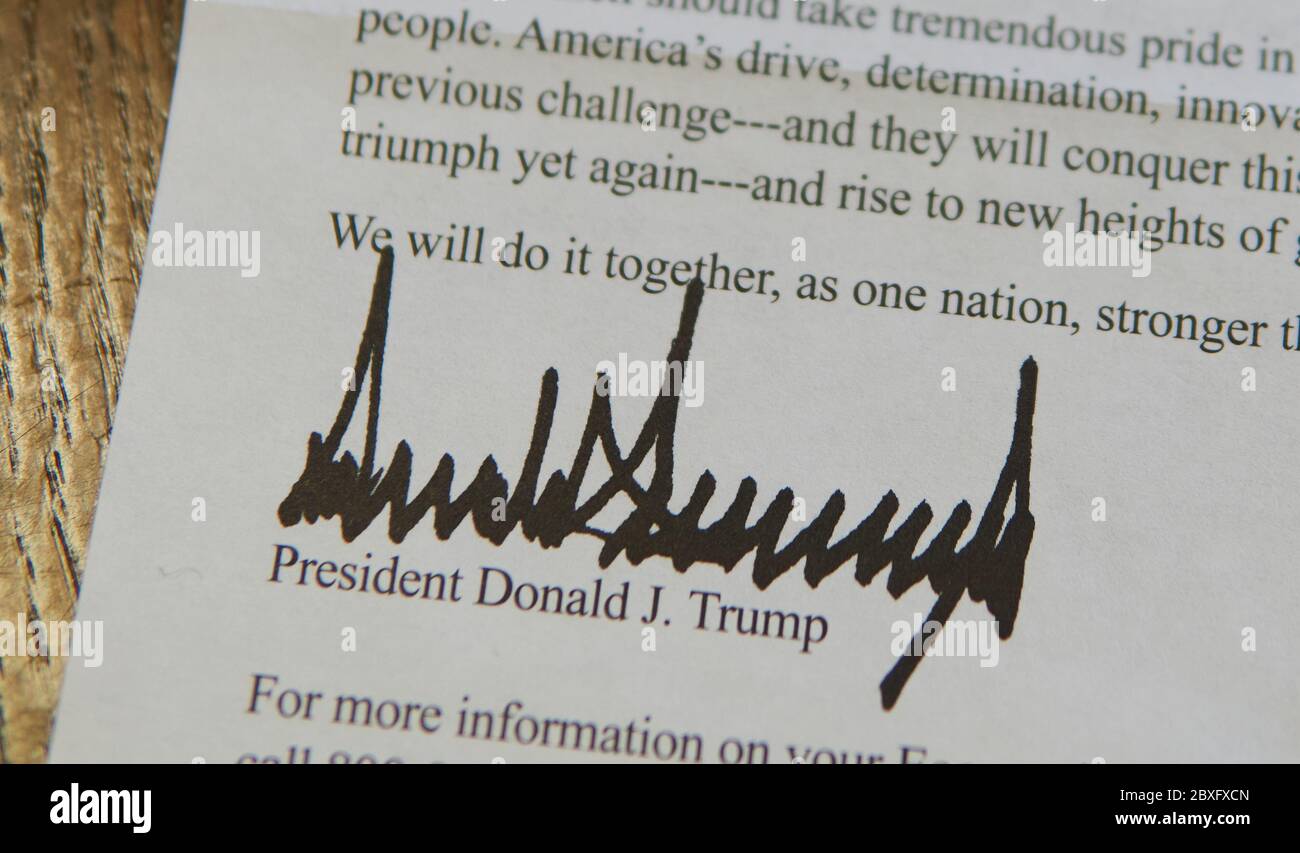 should take tremendous pride in
people. America's drive, determination,
previous challenge---and they will conquer this
triumph yet again---and rise to new heights of
We will do it together, as one nation, stronger
President Donald J. Trump
For more information on your
call
alamy
Image ID: 2BXFXCN
www.alamy.com